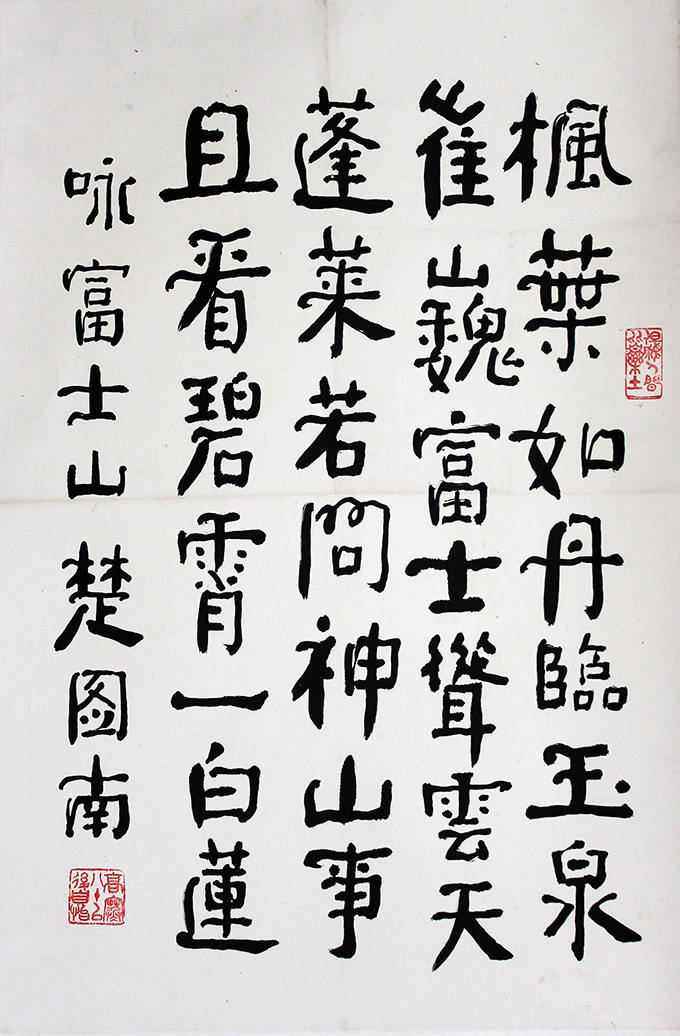 楓葉如丹臨玉泉
崔巍富士聳雲天
蓬萊若問神山事
且看碧霄一白蓮
咏富士山 楚图南